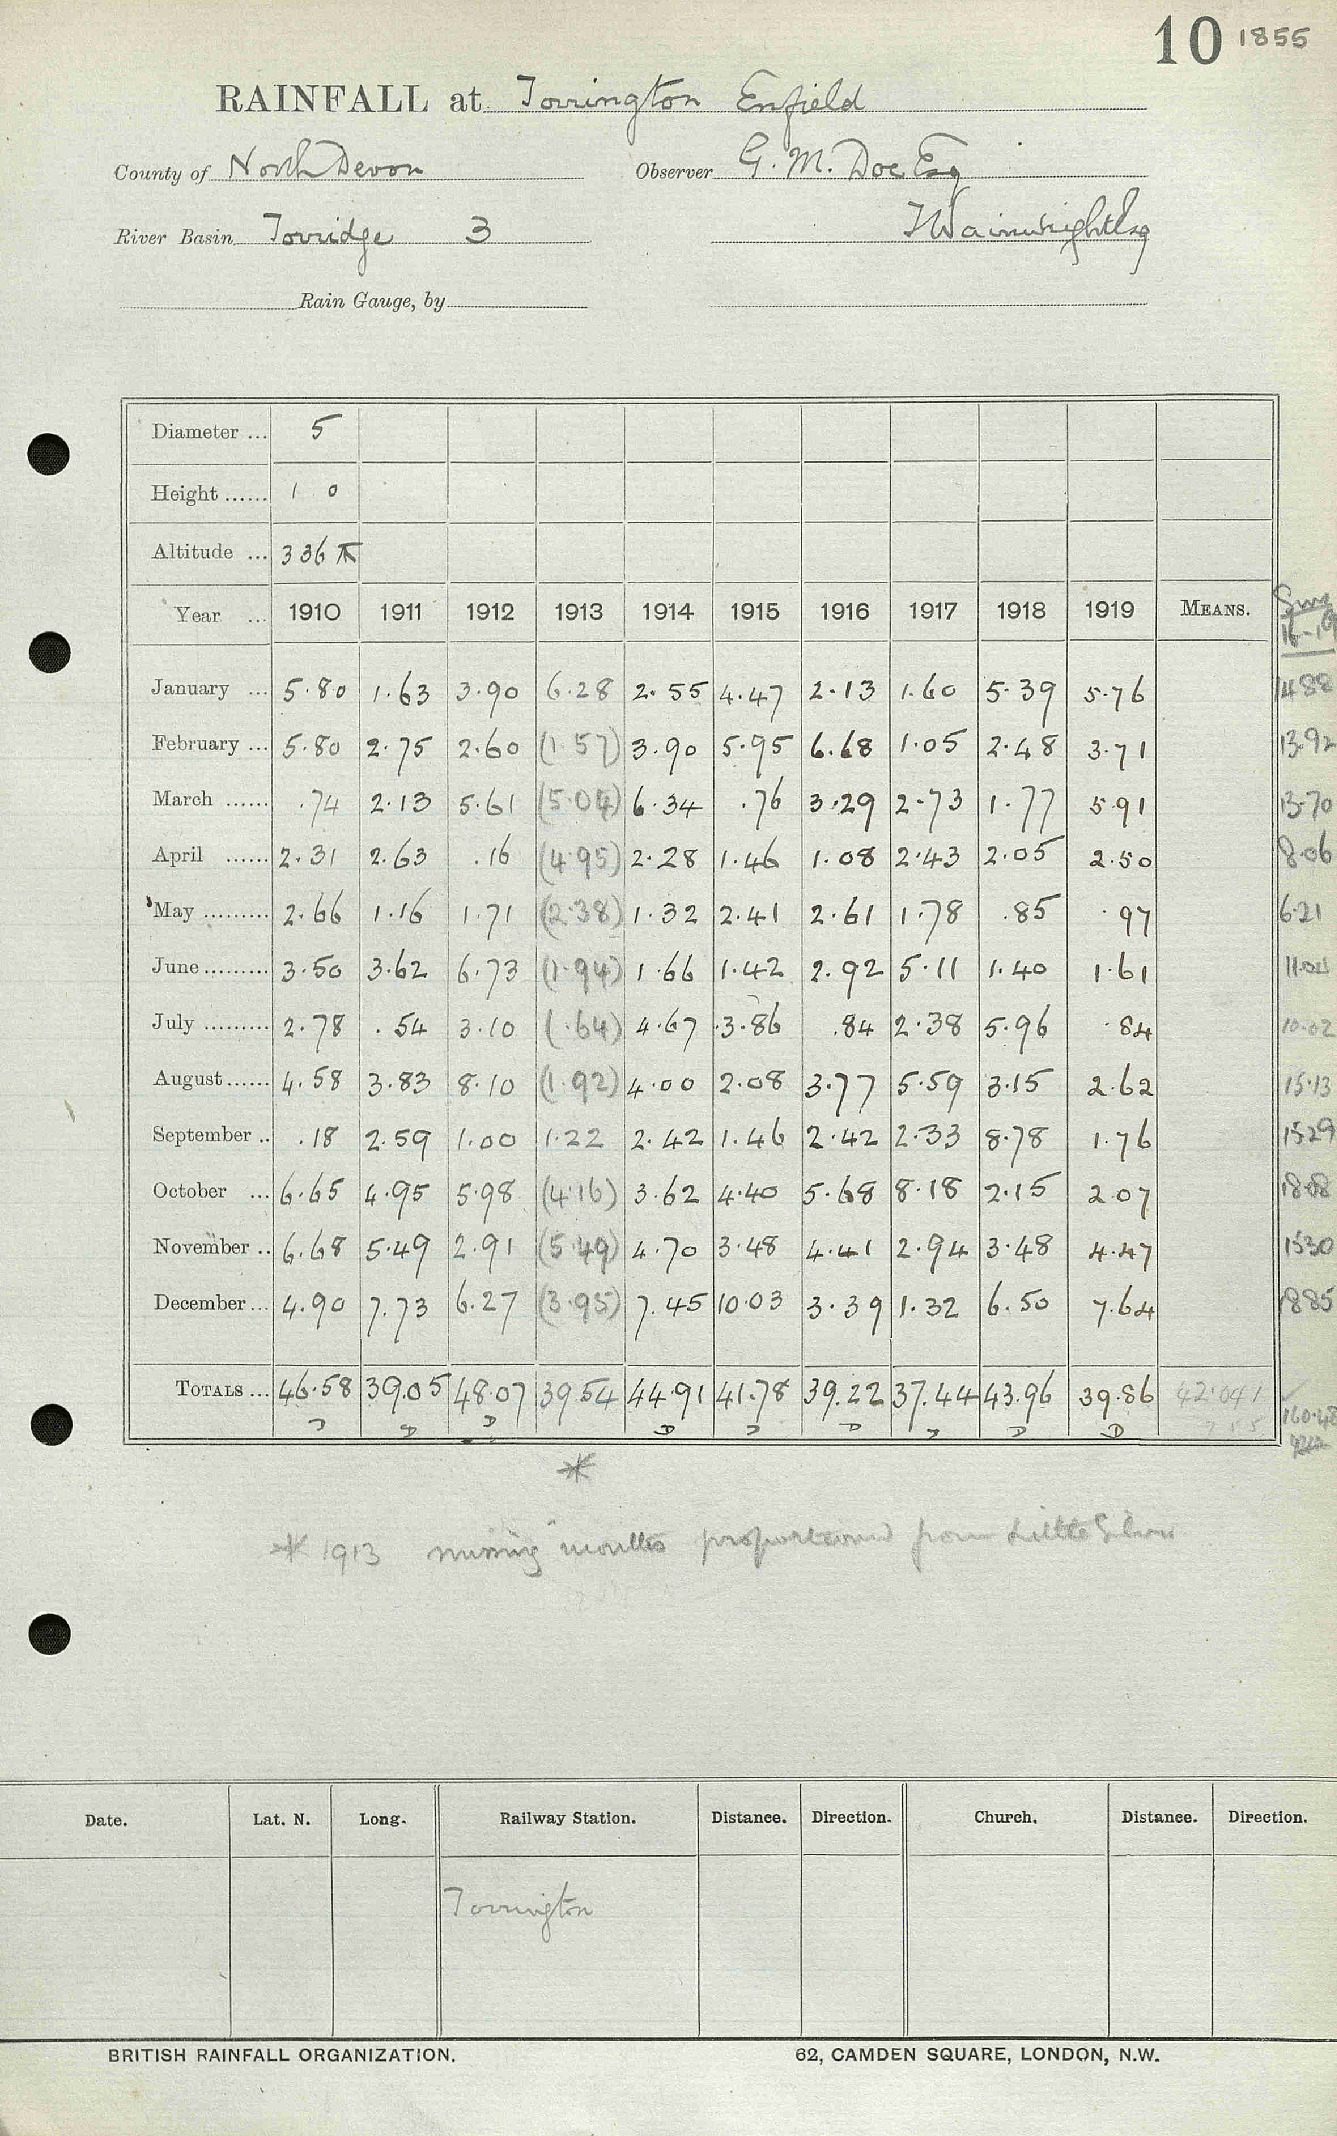 10 1855
RAINFALL at Torrington Enfield
County of North Devon Observer G. M. Doe Esq
River Basin Torridge 3 T Wainwright Esq
Rain Gauge, by
Diameter ... 5
Height ...... 1 0
Altitude ... 336
Year ... 1910 1911 1912 1913 1914 1915 1916 1917 1918 1919 MEANS. Sums 16-19
January ... 5.80 1.63 3.90 6.28 2.55 4.47 2.13 1.60 5.39 5.76 1488
February ... 5.80 2.75 2.60 (1.57) 3.90 5.95 6.68 1.05 2.48 3.71 13.92
March ...... .74 2.13 5.61 (5.04) 6.34 .76 3.29 2.73 1.77 5.91 13.70
April ...... 2.31 2.63 .16 (4.95) 2.28 1.46 1.08 2.43 2.05 2.50 8.06
May ......... 2.66 1.16 1.71 (2.38) 1.32 2.41 2.61 1.78 .85 .97 6.21
June ......... 3.50 3.62 6.73 (1.94) 1.66 1.42 2.92 5.11 1.40 1.61 11.04
July ......... 2.78 .54 3.10 (.64) 4.67 3.86 .84 2.38 5.96 .84 10.02
August...... 4.58 3.83 8.10 (1.92) 4.00 2.08 3.77 5.59 3.15 2.62 15.13
September .. .18 2.59 1.00 1.22 2.42 1.46 2.42 2.33 8.78 1.76 1529
October ... 6.65 4.95 5.98 (4.16) 3.62 4.40 5.68 8.18 2.15 2.07 18.08
November .. 6.68 5.49 2.91 (5.49) 4.70 3.48 4.41 2.94 3.48 4.47 1530
December ... 4.90 7.73 6.27 (3.95) 7.45 10.03 3.39 1.32 6.50 7.64 1885
TOTALS ... 46.58 39.05 48.07 39.54 44.91 41.78 39.22 37.44 43.96 39.86 42.041 160.48
D D D D D D D D D
*
* 1913 missing months proportioned from Little Silver
Date. Lat. N. Long. Railway Station. Distance. Direction. Church. Distance. Direction.
Torrington
BRITISH RAINFALL ORGANIZATION. 62, CAMDEN SQUARE, LONDON, N.W.